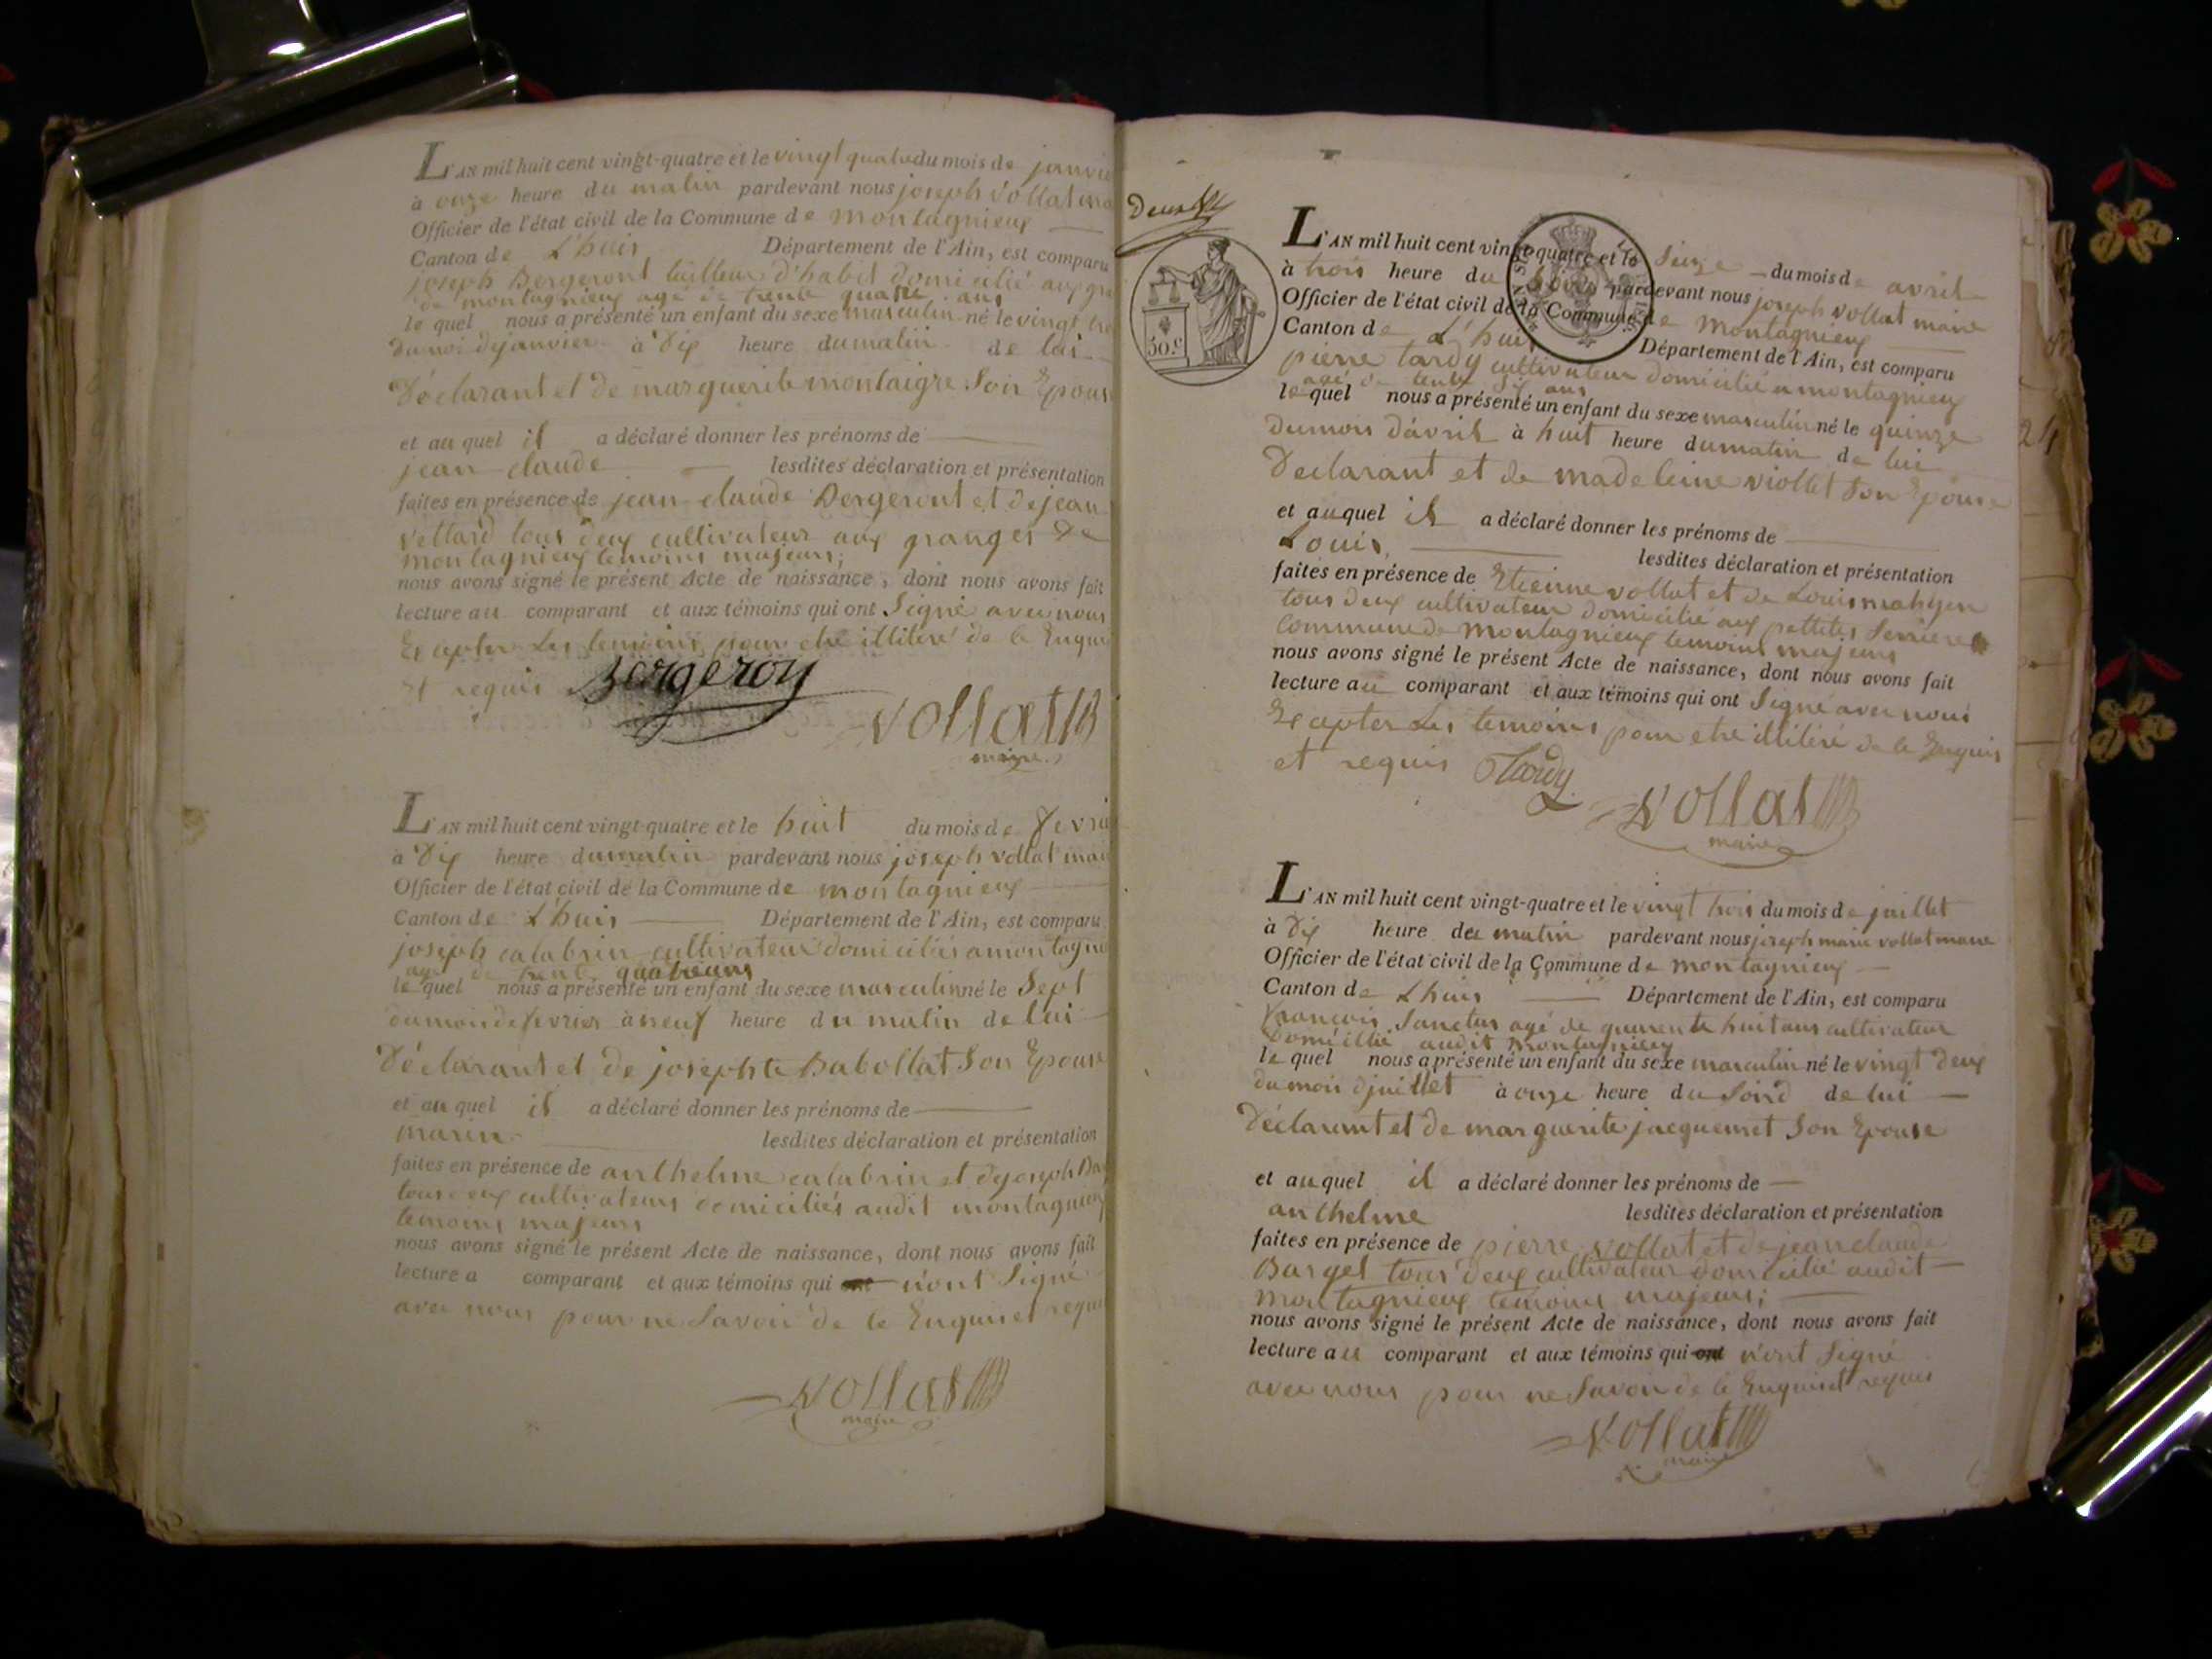 L'AN mil huit cent vingt-quatre et le vingt quatre du mois de janvie
à onze heure du matin pardevant nous joseph vollat ma
Officier de l'état civil de la Commune de montagnieux
Canton de L'huis Département de l'Ain, est comparu
joseph Bergeront tailleur d'habit domicilié aux gr
de montagnieux agé de trente quatre ans
le quel nous a présenté un enfant du sexe masculin né le vingt tro
du moi djanvier à dix heure du matin de lui
Déclarant et de marguerite montaigre Son Epous
et au quel il a déclaré donner les prénoms de
jean claude lesdites déclaration et présentation
faites en présence de jean claude Bergeront et de jean
vettard tous deux cultivateur aux granges de
montagnieux temoins majeurs;
nous avons signé le présent Acte de naissance, dont nous avons fait
lecture au comparant et aux témoins qui ont Signé avec nous
Excepter les temoins pour etre illiteré de le Enque
et requis Bergeron
vollat
maire
L'AN mil huit cent vingt-quatre et le huit du mois de fevrie
à dix heure du matin pardevant nous joseph vollat mai
Officier de l'état civil de la Commune de montagnieux
Canton de L'huis Département de l'Ain, est comparu
joseph calabrin cultivateur domiciliés a montagne
agé de trente quatre ans
le quel nous a présenté un enfant du sexe masculin né le Sept
du moi de fevrier à neuf heure du matin de lui
Déclarant et de josephte Babollat Son Epouse
et au quel il a déclaré donner les prénoms de
marin lesdites déclaration et présentation
faites en présence de anthelme calabrin et djoseph Ba
tous deux cultivateurs domiciliés audit montagnieux
temoins majeurs
nous avons signé le présent Acte de naissance, dont nous avons fait
lecture a comparant et aux témoins qui ont n'ont Signé
avec nous pour ne Savoir de le Enquis et requi
vollat
maire
deux
50.c
L'AN mil huit cent vingt-quatre et le Seize du mois de avril
à trois heure du Soird pardevant nous joseph vollat maire
Officier de l'état civil de la Commune de montagnieux
Canton de L'huis Département de l'Ain, est comparu
pierre tardy cultivateur domicilié a montagnieux
agé de trente six ans
le quel nous a présenté un enfant du sexe masculin né le quinze
du mois d'avril à huit heure du matin de lui
Declarant et de madeleine viollet Son Epouse
et au quel il a déclaré donner les prénoms de
Louis lesdites déclaration et présentation
faites en présence de Etienne vollat et de Louis
tous deux cultivateur domicilié aux pettites Serrieres
commune de montagnieux temoins majeurs
nous avons signé le présent Acte de naissance, dont nous avons fait
lecture au comparant et aux témoins qui ont Signé avec nous
Excepter les temoins pour etre illiteré de le Enquis
et requis Tardy
vollat
maire
L'AN mil huit cent vingt-quatre et le vingt trois du mois de juillet
à dix heure du matin pardevant nous joseph marie vollat maire
Officier de l'état civil de la Commune de montagnieux
Canton de L'huis Département de l'Ain, est comparu
françois Sanctus agé de quarente huit ans cultivateur
Domicilié audit montagnieux
le quel nous a présenté un enfant du sexe masculin né le vingt deux
du mois djuillet à onze heure du Soird de lui
Déclarant et de marguerite jacquemet Son Epouse
et au quel il a déclaré donner les prénoms de
anthelme lesdites déclaration et présentation
faites en présence de pierre vollat et de jean claude
Barget tous deux cultivateur domicilié audit
montagnieux temoins majeurs;
nous avons signé le présent Acte de naissance, dont nous avons fait
lecture au comparant et aux témoins qui ont n'ont Signé
avec nous pour ne Savoir de le Enquis et requis
vollat
maire